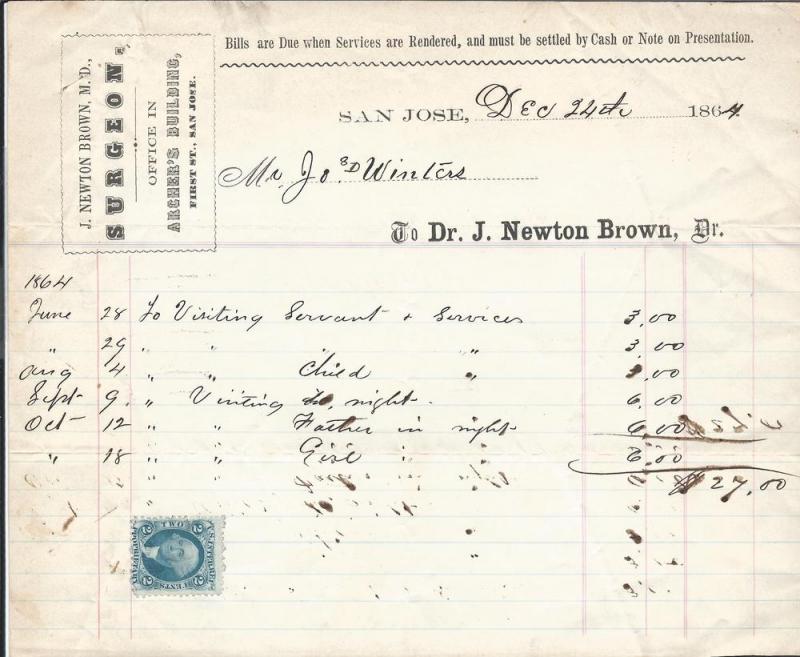 Bills are Due when Services are Rendered, and must be settled by Cash or Note on Presentation.
J. NEWTON BROWN, M.D.,
SURGEON,
OFFICE IN
ARCHER'S BUILDING,
FIRST ST., SAN JOSE.
SAN JOSE, Dec 24th 1864
Mr Jos D Winters
To Dr. J. Newton Brown, Dr.
1864
June 28 To Visiting Servant + Services 3.00
" 29 " " " 3.00
Aug 4 " " Child " 3.00
Sept 9. " Visiting night. 6.00
Oct 12 " " Father in night 6.00
" 18 " " 6.00
$27.00
U.S. INTER. REV.
TWO
2 2
CENTS
PROPRIETARY